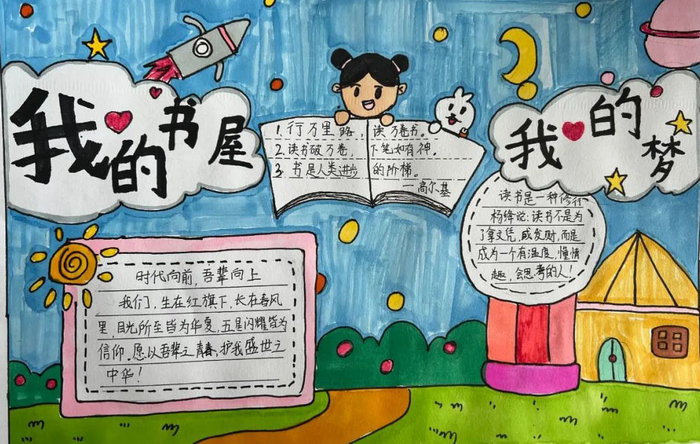 我的书屋
我的梦
1. 行万里路，读万卷书。
2. 读书破万卷，下笔如有神。
3. 书是人类进步的阶梯。
—高尔基
读书是一种修行
杨绛说:读书不是为
了拿文凭,或发财,而是
成为一个有温度,懂情
趣,会思考的人!
时代向前,吾辈向上
我们,生在红旗下,长在春风
里,目光所至皆为华夏,五星闪耀皆为
信仰,愿以吾辈之青春,护我盛世之
中华!